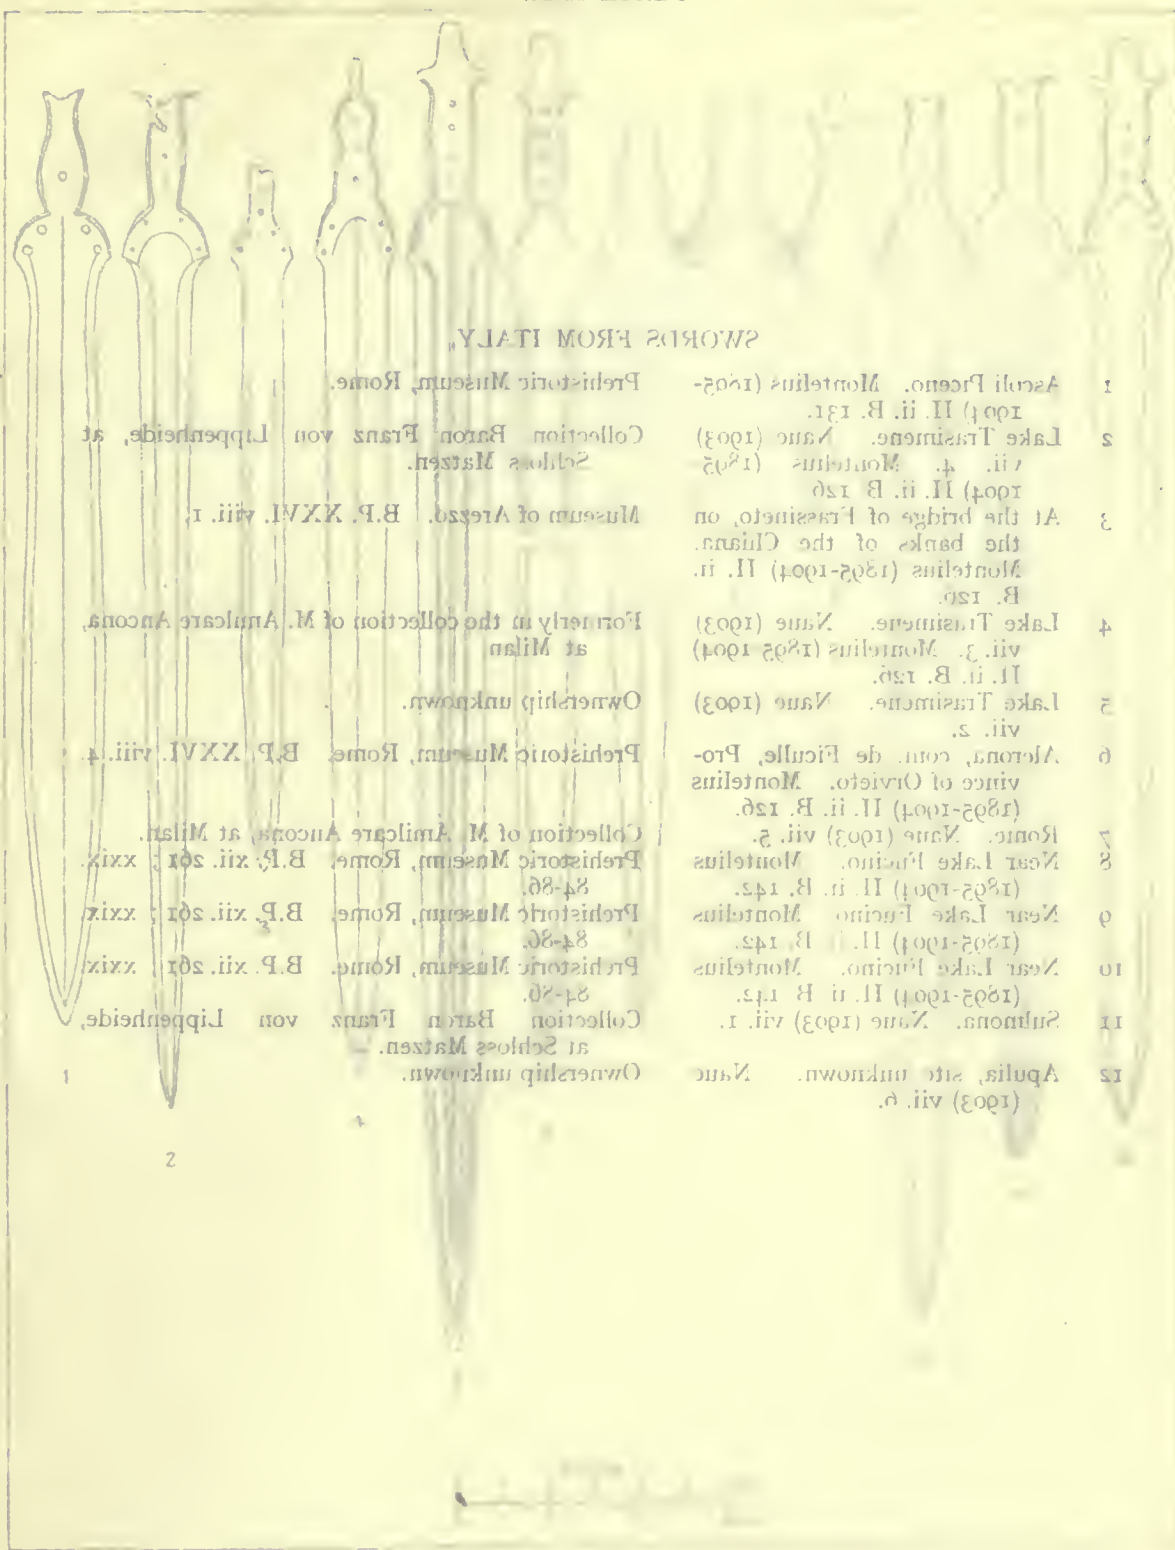 SWORDS FROM ITALY
1 Ascoli Piceno. Montelius (1895-
1904) II. ii. B. 131.
Prehistoric Museum, Rome.
2 Lake Trasimene. Naue (1903)
vii. 4. Montelius (1895
1904) II. ii. B 126
Collection Baron Franz von Lippenheide, at
Schloss Matzen.
3 At the bridge of Frassineto, on
the banks of the Chiana.
Montelius (1895-1904) II. ii.
B. 120.
Museum of Arezzo. B.P. XXVI. viii. 1.
4 Lake Trasimene. Naue (1903)
vii. 3. Montelius (1895 1904)
II. ii. B. 126.
Formerly in the collection of M. Amilcare Ancona,
at Milan
5 Lake Trasimene. Naue (1903)
vii. 2.
Ownership unknown.
6 Alerona, com. de Ficulle, Pro-
vince of Orvieto. Montelius
(1895-1904) II. ii. B. 126.
Prehistoric Museum, Rome. B.P. XXVI. viii. 4.
7 Rome. Naue (1903) vii. 5.
Collection of M. Amilcare Ancona, at Milan.
8 Near Lake Fucino. Montelius
(1895-1904) II. ii. B. 142.
Prehistoric Museum, Rome. B.P. xii. 261; xxix.
84-86.
9 Near Lake Fucino Montelius
(1895-1904) II. B 142.
Prehistoric Museum, Rome. B.P. xii. 261; xxix.
84-86.
10 Near Lake Fucino. Montelius
(1895-1904) II. ii B 142.
Prehistoric Museum, Rome. B.P. xii. 261; xxix.
84-86.
11 Sulmona. Naue (1903) vii. 1.
Collection Baron Franz von Lippenheide,
at Schloss Matzen.
12 Apulia, site unknown. Naue
(1903) vii. 6.
Ownership unknown.
1
2